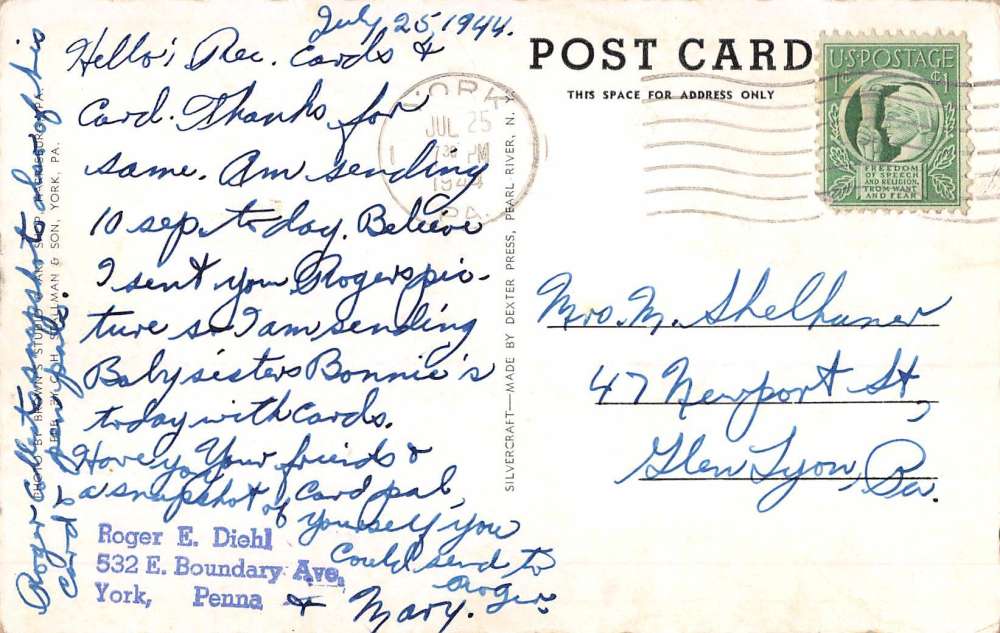 July 25, 1944.
Hello; Rec. cards &
card. Thanks for
same. Am sending
10 sep. today. Believe
I sent you Rogers pic-
ture so I am sending
Baby sisters Bonnie's
today with cards.
Have you
a snapshot of
yourself you
could send to
Roger
Your friends &
card pal,
Roger E. Diehl
532 E. Boundary Ave.
York, Penna
& Mary.
Roger collects snapshots too of his
card & pen pals.
PHOTO BY BROWN'S STUDIO
& SON, YORK, PA.
SILVERCRAFT—MADE BY DEXTER PRESS, PEARL RIVER, N. Y.
POST CARD
THIS SPACE FOR ADDRESS ONLY
YORK
JUL 25
7 30 PM
1944
PA.
U.S. POSTAGE
1¢ ¢1
FREEDOM
OF SPEECH
AND RELIGION,
FROM WANT
AND FEAR
Mrs. M. Shelhamer
47 Newport St,
Glen Lyon, Pa.